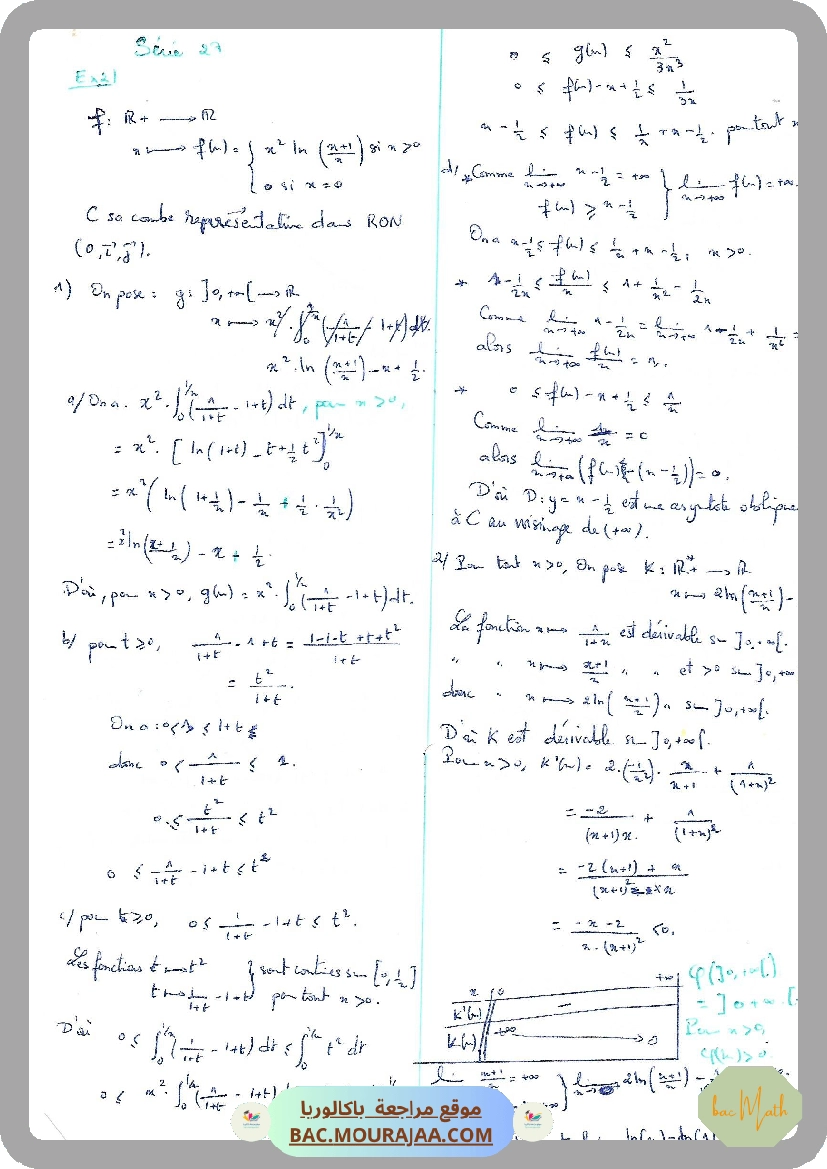 Série 27
Ex2)
f: ℝ+ → ℝ
x ↦ f(x) = { x² ln((x+1)/x) si x>0
0 si x=0
C sa courbe représentative dans RON
(O,i⃗,j⃗).
1) On pose : g: ]0,+∞[ → ℝ
x ↦
x².ln((x+1)/x) - x + 1/2.
a/ On a. x². ∫₀^{1/x} (1/(1+t) - 1+t) dt, pour x>0,
= x². [ln(1+t) - t + 1/2 t²]₀^{1/x}
= x² (ln(1+1/x) - 1/x + 1/2 . 1/x²)
= x² ln((x+1)/x) - x + 1/2.
D'où, pour x>0, g(x) = x². ∫₀^{1/x} (1/(1+t) - 1+t) dt.
b/ pour t≥0, 1/(1+t) - 1+t = (1-1-t+t+t²)/(1+t)
= t²/(1+t).
On a : 0<1≤1+t
donc 0 < 1/(1+t) ≤ 1.
0 ≤ t²/(1+t) ≤ t²
0 ≤ 1/(1+t) - 1+t ≤ t²
c/ pour t≥0, 0 ≤ 1/(1+t) - 1+t ≤ t².
Les fonctions t ↦ t²
t ↦ 1/(1+t) - 1+t } sont continues sur [0,1/x] pour tout x>0.
D'où 0 ≤ ∫₀^{1/x} (1/(1+t) - 1+t) dt ≤ ∫₀^{1/x} t² dt
0 ≤ x². ∫₀^{1/x} (1/(1+t) - 1+t)
0 ≤ g(x) ≤ x²/3x³
0 ≤ f(x) - x + 1/2 ≤ 1/3x
x - 1/2 ≤ f(x) ≤ 1/x + x - 1/2. pour tout x
d/ * Comme lim x→+∞ x - 1/2 = +∞
f(x) ≥ x - 1/2 } lim x→+∞ f(x) = +∞.
On a x - 1/2 ≤ f(x) ≤ 1/x + x - 1/2, x>0.
* 1 - 1/2x ≤ f(x)/x ≤ 1 + 1/x² - 1/2x
Comme lim x→+∞ 1 - 1/2x = lim x→+∞ 1 - 1/2x + 1/x² =
alors lim x→+∞ f(x)/x = 1.
* 0 ≤ f(x) - x + 1/2 ≤ 1/x
Comme lim x→+∞ 1/x = 0
alors lim x→+∞ (f(x) - (x - 1/2)) = 0.
D'où D: y = x - 1/2 est une asymptote oblique
à C au voisinage de (+∞).
2/ Pour tout x>0, On pose K: ℝ*+ → ℝ
x ↦ 2ln((x+1)/x) -
La fonction x ↦ 1/(1+x) est dérivable sur ]0,+∞[.
" " x ↦ (x+1)/x " " et >0 sur ]0,+∞
donc " x ↦ 2ln((x+1)/x) " sur ]0,+∞[.
D'où K est dérivable sur ]0,+∞[.
Pour x>0, K'(x) = 2.(-1/x²). x/(x+1) + 1/(1+x)²
= -2/((x+1)x) + 1/(1+x)²
= (-2(x+1) + x)/((x+1)² × x)
= (-x-2)/(x.(x+1)²) <0.
x 0 +∞
K'(x) -
K(x) +∞ 0
φ(]0,+∞[)
= ]0,+∞[.
Pour x>0,
φ(x)>0.
lim (x+1)/x = +∞ } lim 2ln((x+1)/x) -
bac Math
موقع مراجعة باكالوريا
BAC.MOURAJAA.COM